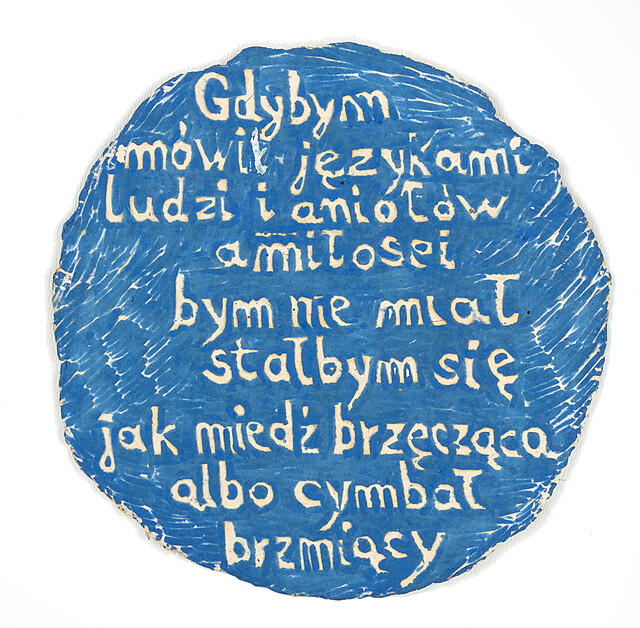 Gdybym
mówił językami
ludzi i aniołów
a miłosci
bym nie miał
stałbym się
jak miedź brzęcząca
albo cymbał
brzmiący